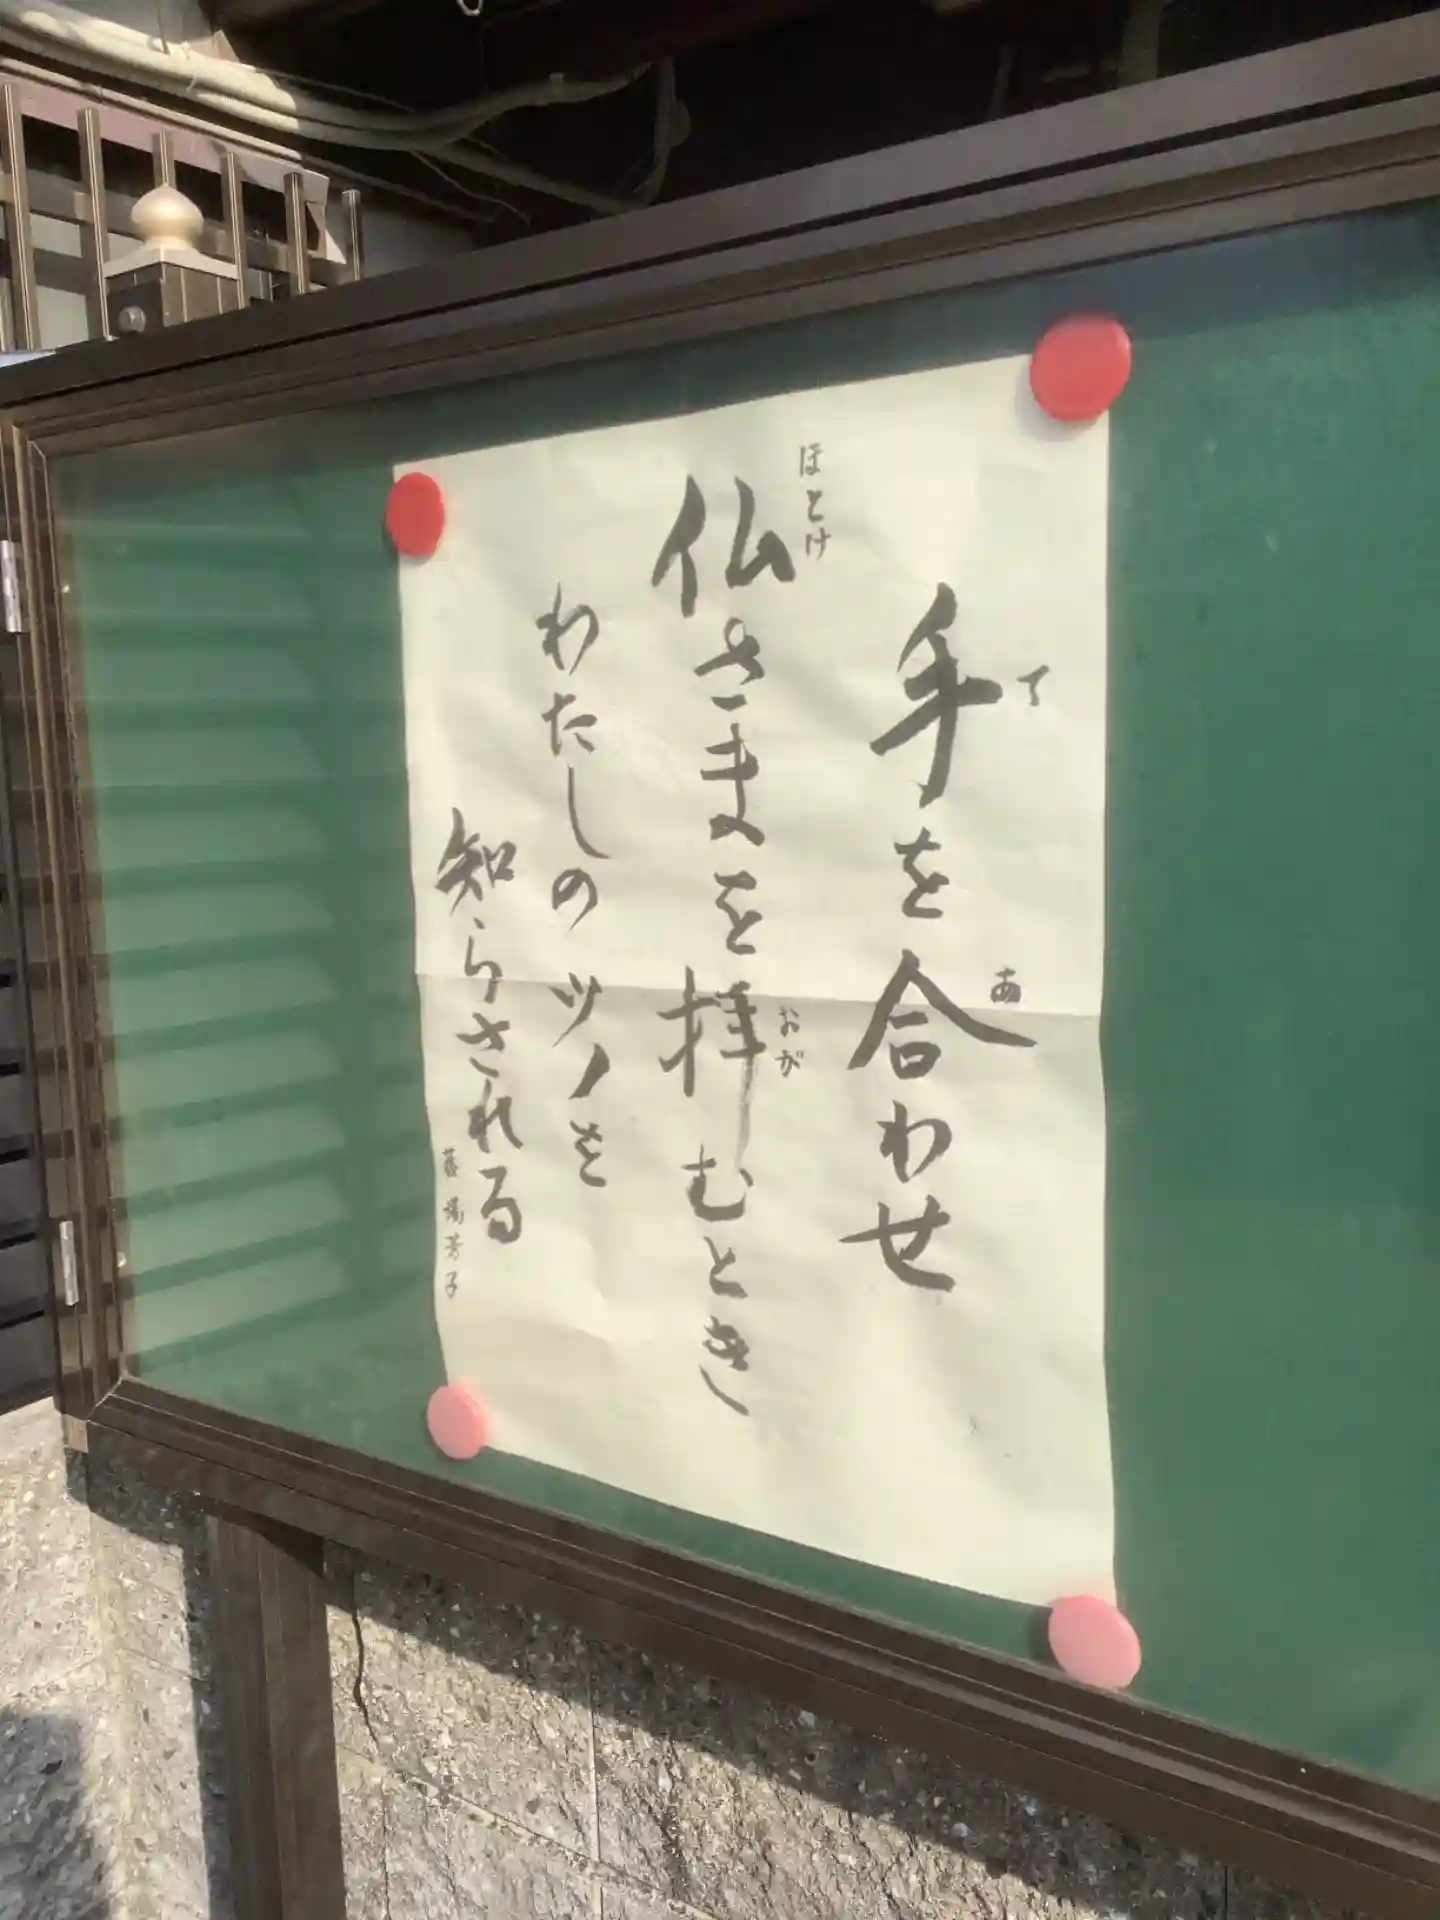 手を合わせ
て
あ
仏さまを拝むとき
ほとけ
おが
わたしのツノを
知らされる
藤場芳子